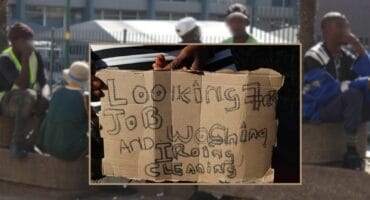 Looking FOR
JOB
AND WAShing
IRoing
CLEANING